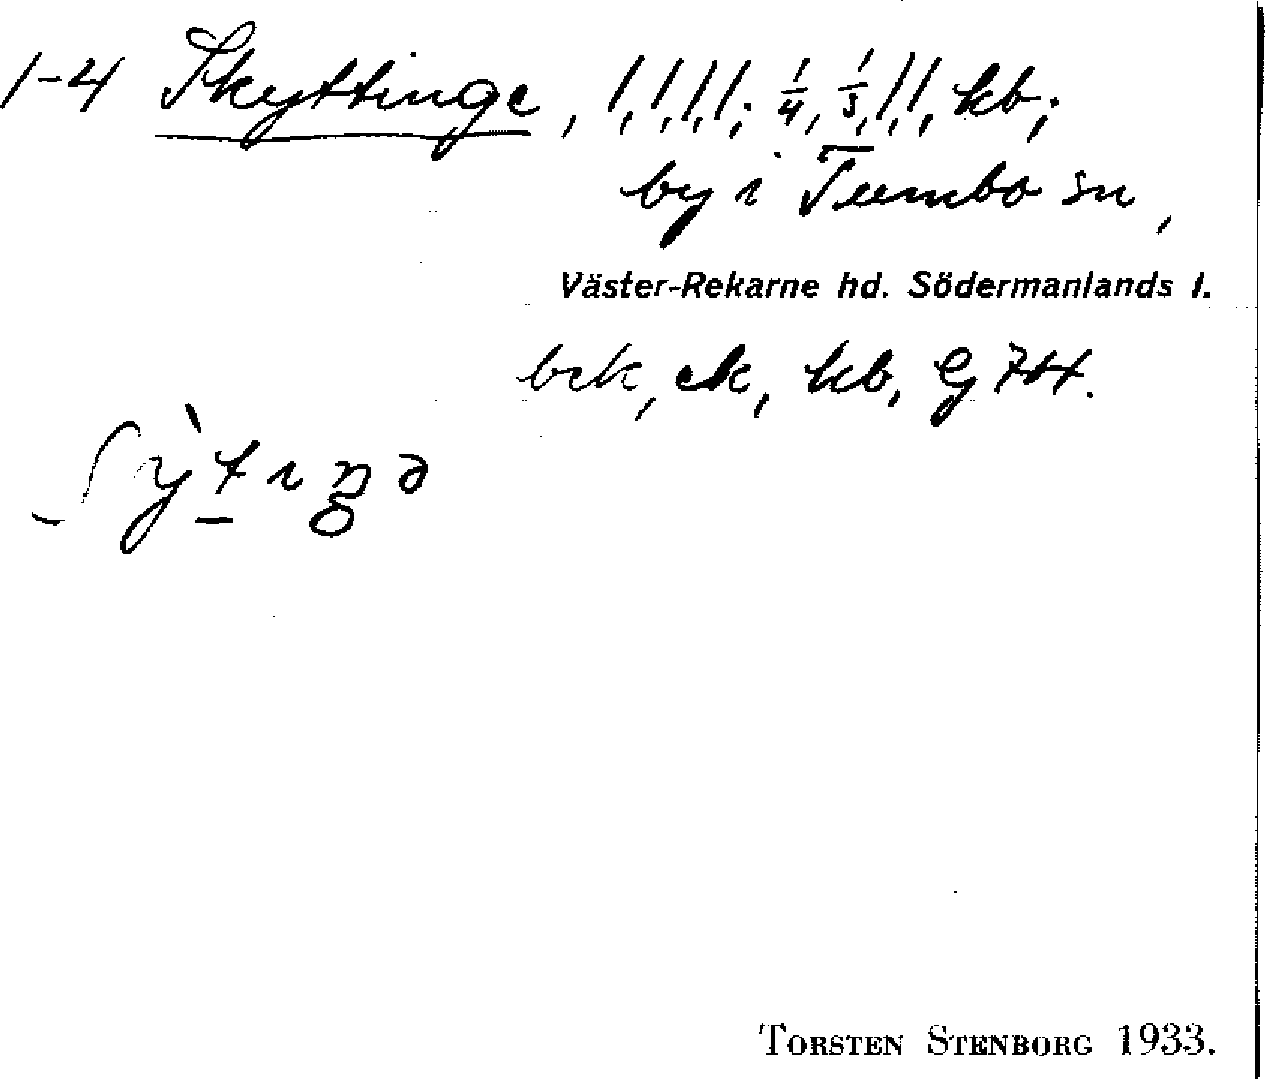 1-4 Skyttinge, 1, 1, 1, 1; 1/4, 1/3, 1, 1, kb;
by i Tumbo sn,
Väster-Rekarne hd. Södermanlands l.
bek, ek, kb, G74.
ʃỳtıŋə
TORSTEN STENBORG 1933.